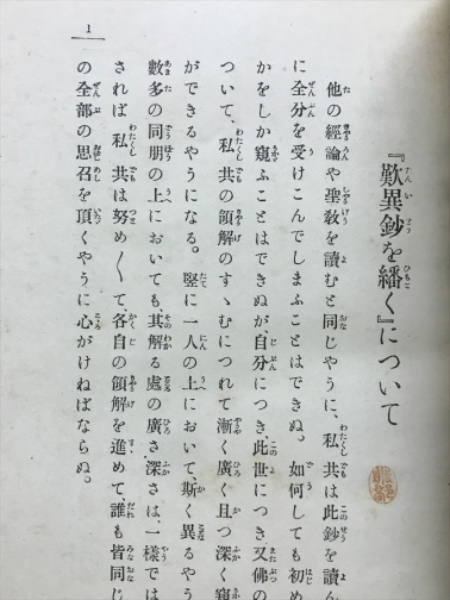 1
『歎異鈔を繙く』について
他の經論や聖敎を讀むと同じやうに、私共は此鈔を讀ん
に全分を受けこんでしまふことはできぬ。如何しても初め
かをしか窺ふことはできぬが、自分につき、此世につき又佛の
ついて、私共の領解のすゝむにつれて漸く廣く且つ深く窺
ができるやうになる。竪に一人の上において、斯く異るやう
數多の同朋の上においても、其解る處の廣さ深さは、一樣では
されば私共は努め〱て、各自の領解を進めて、誰も皆同じ
の全部の思召を頂くやうに心がけねばならぬ。